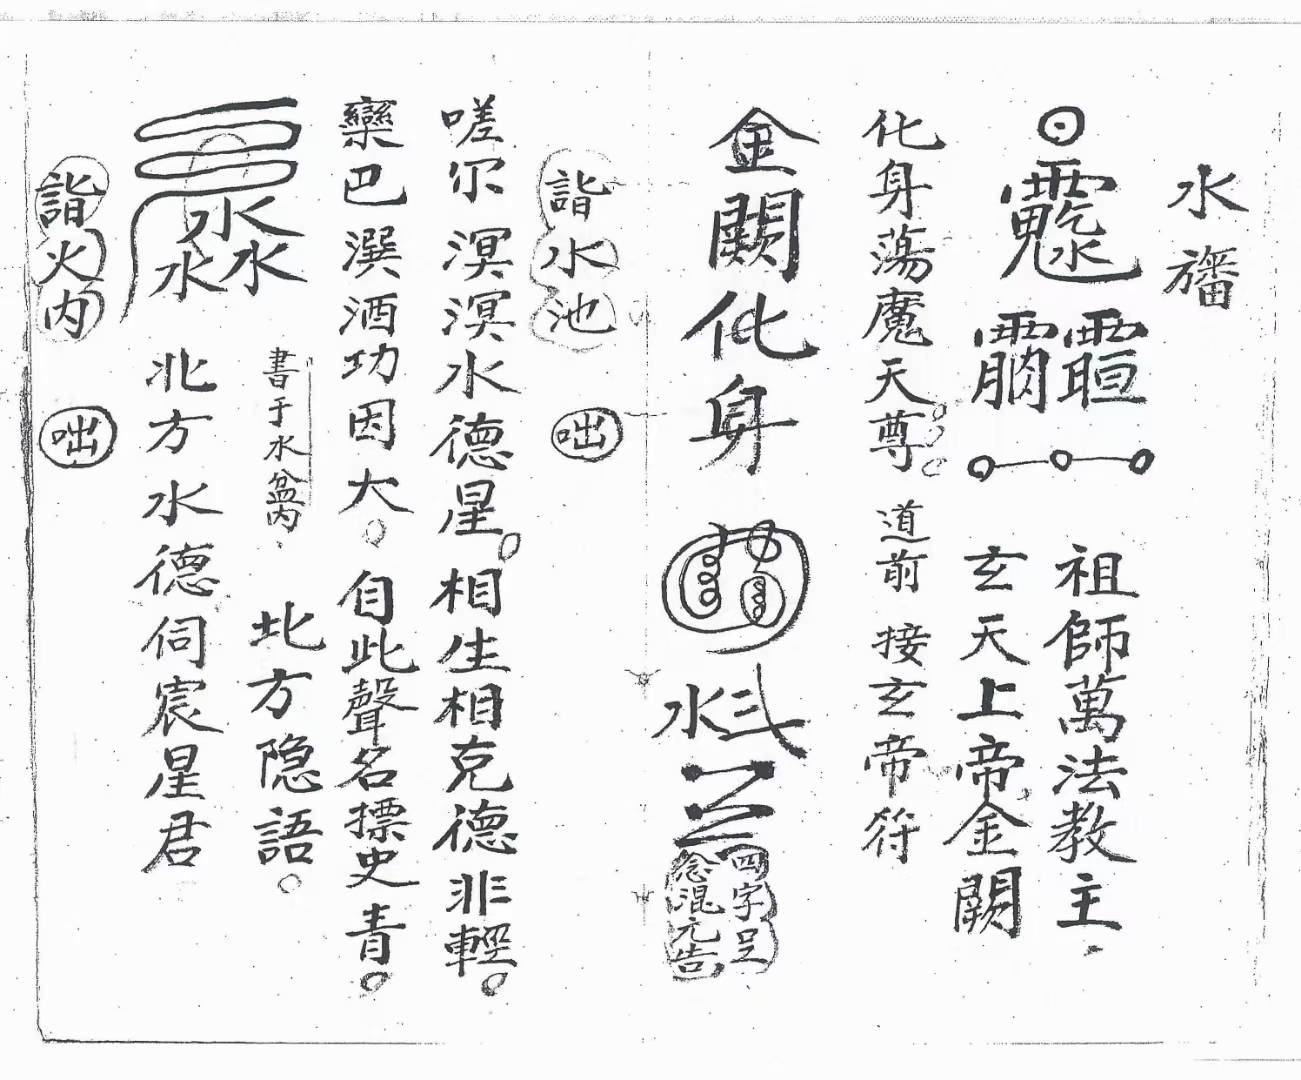 水旛
祖師萬法教主
玄天上帝金闕
化身蕩魔天尊道前接玄帝符
金闕化身
水
四字足
念混元告
詣水池 咄
嗟尔溟溟水德星相生相克德非輕
欒巴潠酒功因大自此聲名摽史青
書于水盆内 北方隐語
水水水
北方水德伺宸星君
詣火内 咄